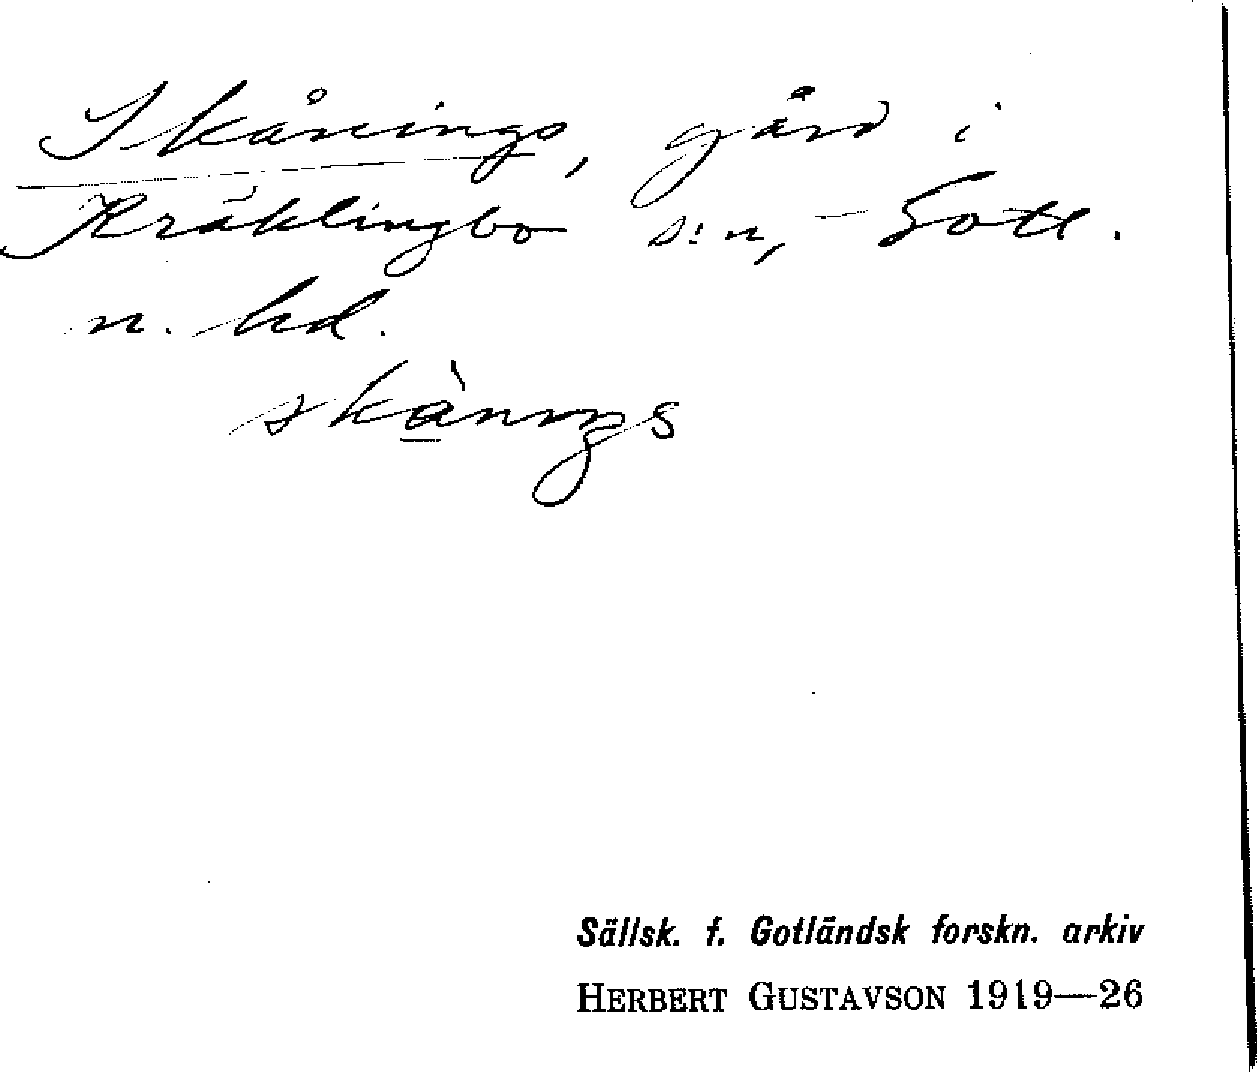 Skånings, gård i
Kräklingbo s:n, Gotl.
n. hd.
skànıŋs
Sällsk. f. Gotländsk forskn. arkiv
HERBERT GUSTAVSON 1919—26